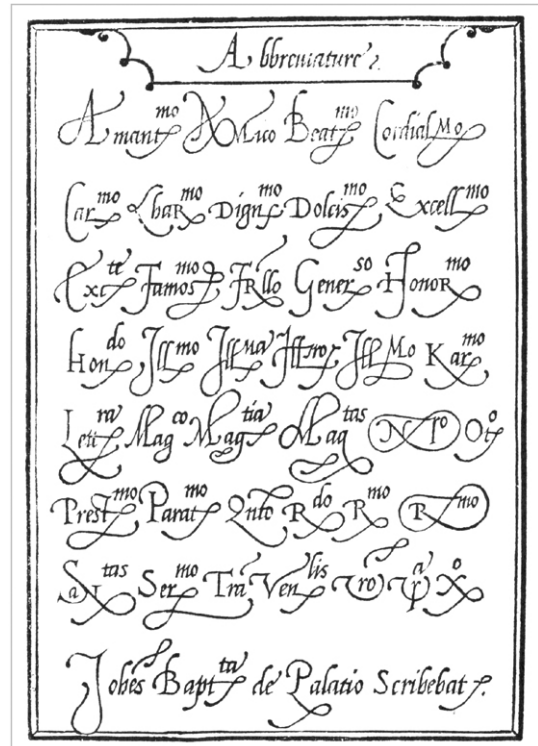 Abbreviature.
Amant^mo Amico Beat^mo Cordial^Mo
Car^mo Char^mo Dign^mo Dolcis^mo Excell^mo
Exc^te Famos^mo Frllo Gener^so Honor^mo
Hon^do Ill^mo Ill^na Ill^Mo Kar^mo
Lett^ra Mag^co Mag^tia Mag^tas N^ro Ot^o
Prest^mo Parat^mo Qnto R^do R^mo R^mo
Sa^tas Ser^mo Tra Ven^lis Vro X^o
Johes Bapt^ta de Palatio Scribebat.